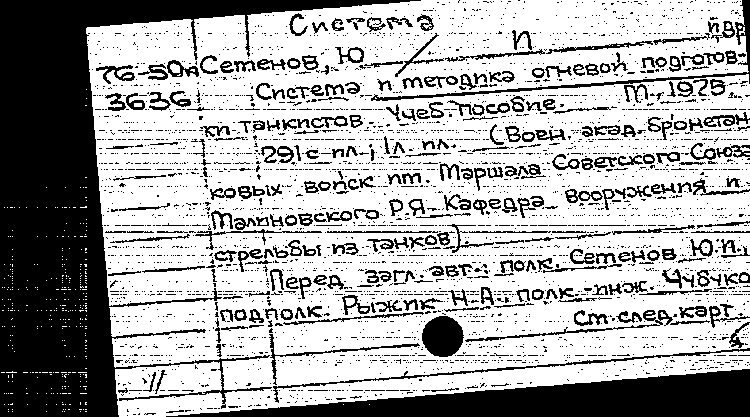 Система
76-50п Сетенов, Ю / П й др
3636 Система и методика огневой подготов-
ки танкистов. Учеб. пособие. М., 1975.
291с ил.; 1л. ил. (Воен. акад. бронетан
ковых войск им. Маршала Советского Союза
Малиновского Р.Я. Кафедра вооружения и
стрельбы из танков).
Перед загл. авт.: полк. Сетенов Ю.П.,
подполк. Рыжик Н.А., полк.-инж. Чубучко
См. след. карт.